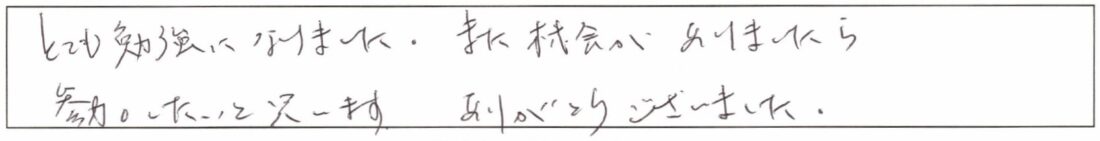 とても勉強になりました。また機会がありましたら
参加したいと思います ありがとうございました。